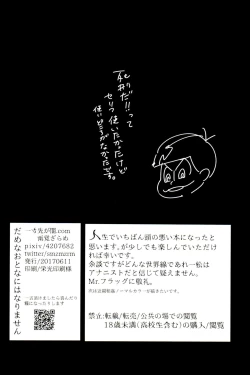 死刑だ!!って
セリフ使いたかったけど
使いどころがなかった。
だめなおとなにはなりません
一寸先が闇.com
雨覚ざらめ
pixiv/4207682
twitter/smzmzrm
発行/20170611
印刷/栄光印刷様
人生でいちばん頭の悪い本になったと
思います。が少しでも楽しんでいただけ
れば幸いです。
余談ですがどんな世界線であれ一松は
アナニストだと信じて疑えません。
Mr.フラッグに敬礼。
禁止:転載/転売/公共の場での閲覧
18歳未満(高校生含む)の購入/閲覧